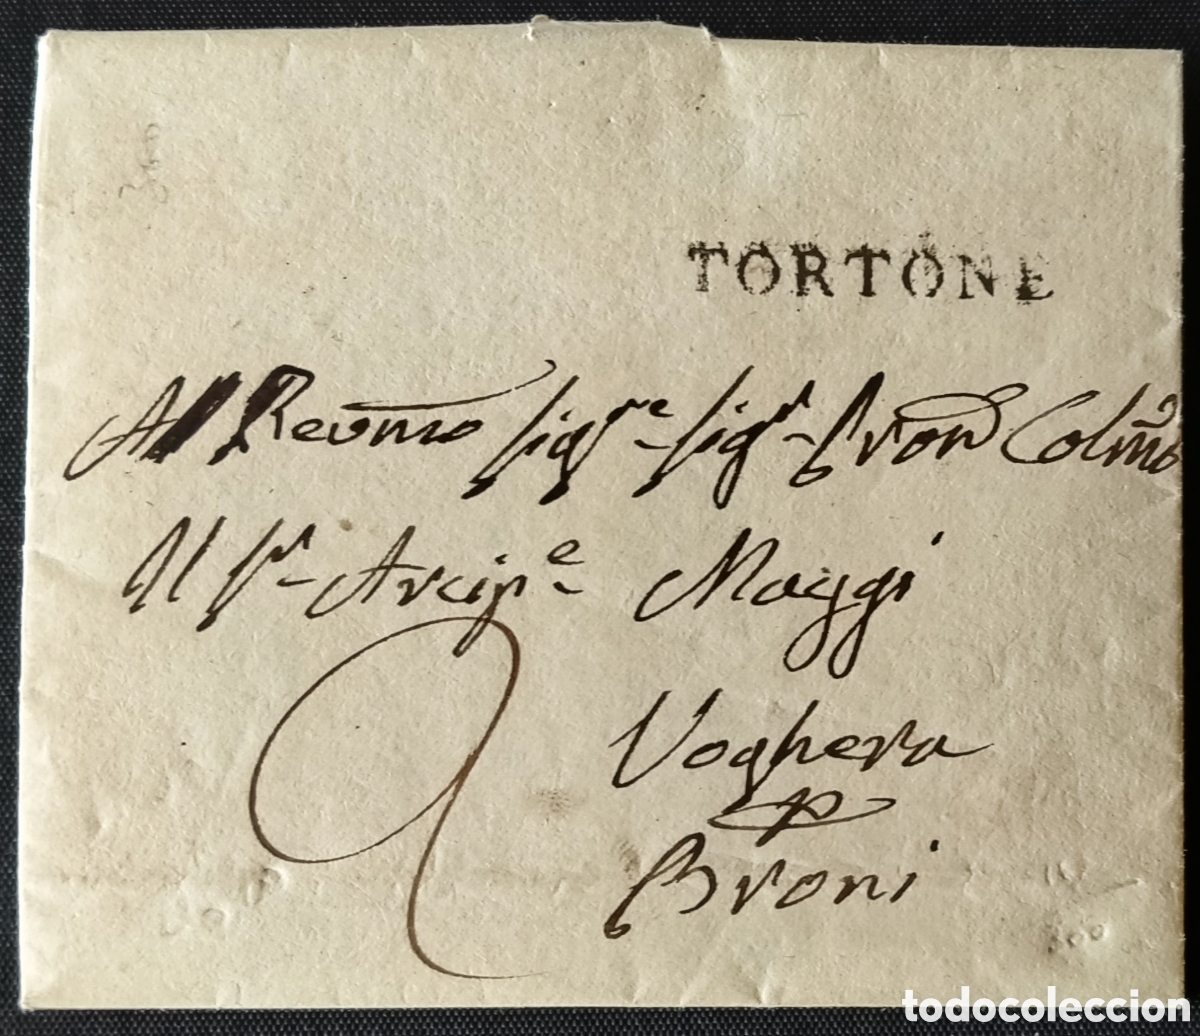 TORTONE
Al Revmo Sigre Sigr Pron Colmo
Il Sr Arcipe Maggi
Voghera
p
Broni
300
todocoleccion